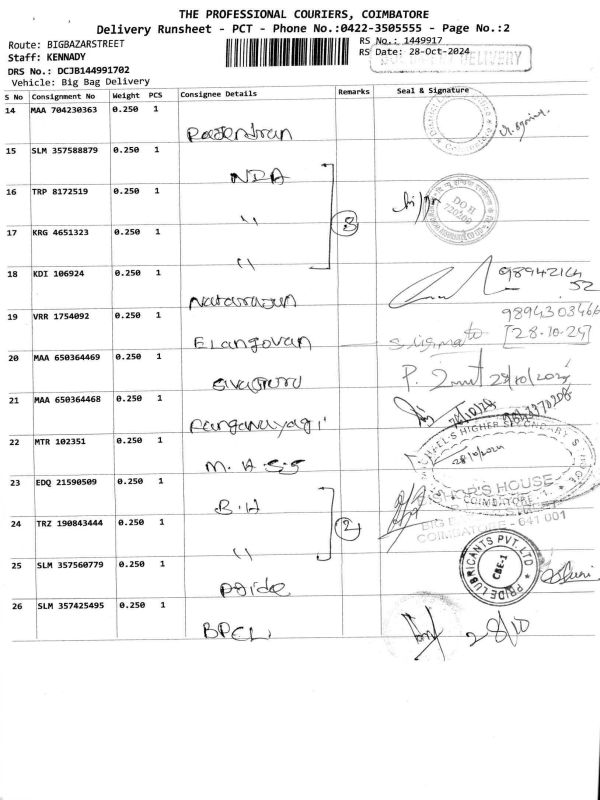 THE PROFESSIONAL COURIERS, COIMBATORE
Delivery Runsheet - PCT - Phone No.:0422-3505555 - Page No.:2
Route: BIGBAZARSTREET
RS No.: 1449917
Staff: KENNADY
RS Date: 28-Oct-2024
DELIVERY
DRS No.: DCJB144991702
Vehicle: Big Bag Delivery
S No Consignment No Weight PCS Consignee Details Remarks Seal & Signature
14 MAA 704230363 0.250 1
15 SLM 357588879 0.250 1
NIA
16 TRP 8172519 0.250 1
"
DO H
720200
3
17 KRG 4651323 0.250 1
"
18 KDI 106924 0.250 1
Natarajan
9894216452
19 VRR 1754092 0.250 1
Elangovan
9894303466
[28-10-24]
20 MAA 650364469 0.250 1
28/10/2024
21 MAA 650364468 0.250 1
Ranganayagi
22 MTR 102351 0.250 1
M.H.S.S
MICHAEL'S HIGHER SECONDARY S
28/10/2024
23 EDQ 21590509 0.250 1
B.H
HOUSE
COIMBATORE - 1.
24 TRZ 190843444 0.250 1
"
2
COIMBATORE - 641 001
25 SLM 357560779 0.250 1
Pride
PRIDE LUBRICANTS PVT LTD
CBE-1
26 SLM 357425495 0.250 1
BPCL
28/10